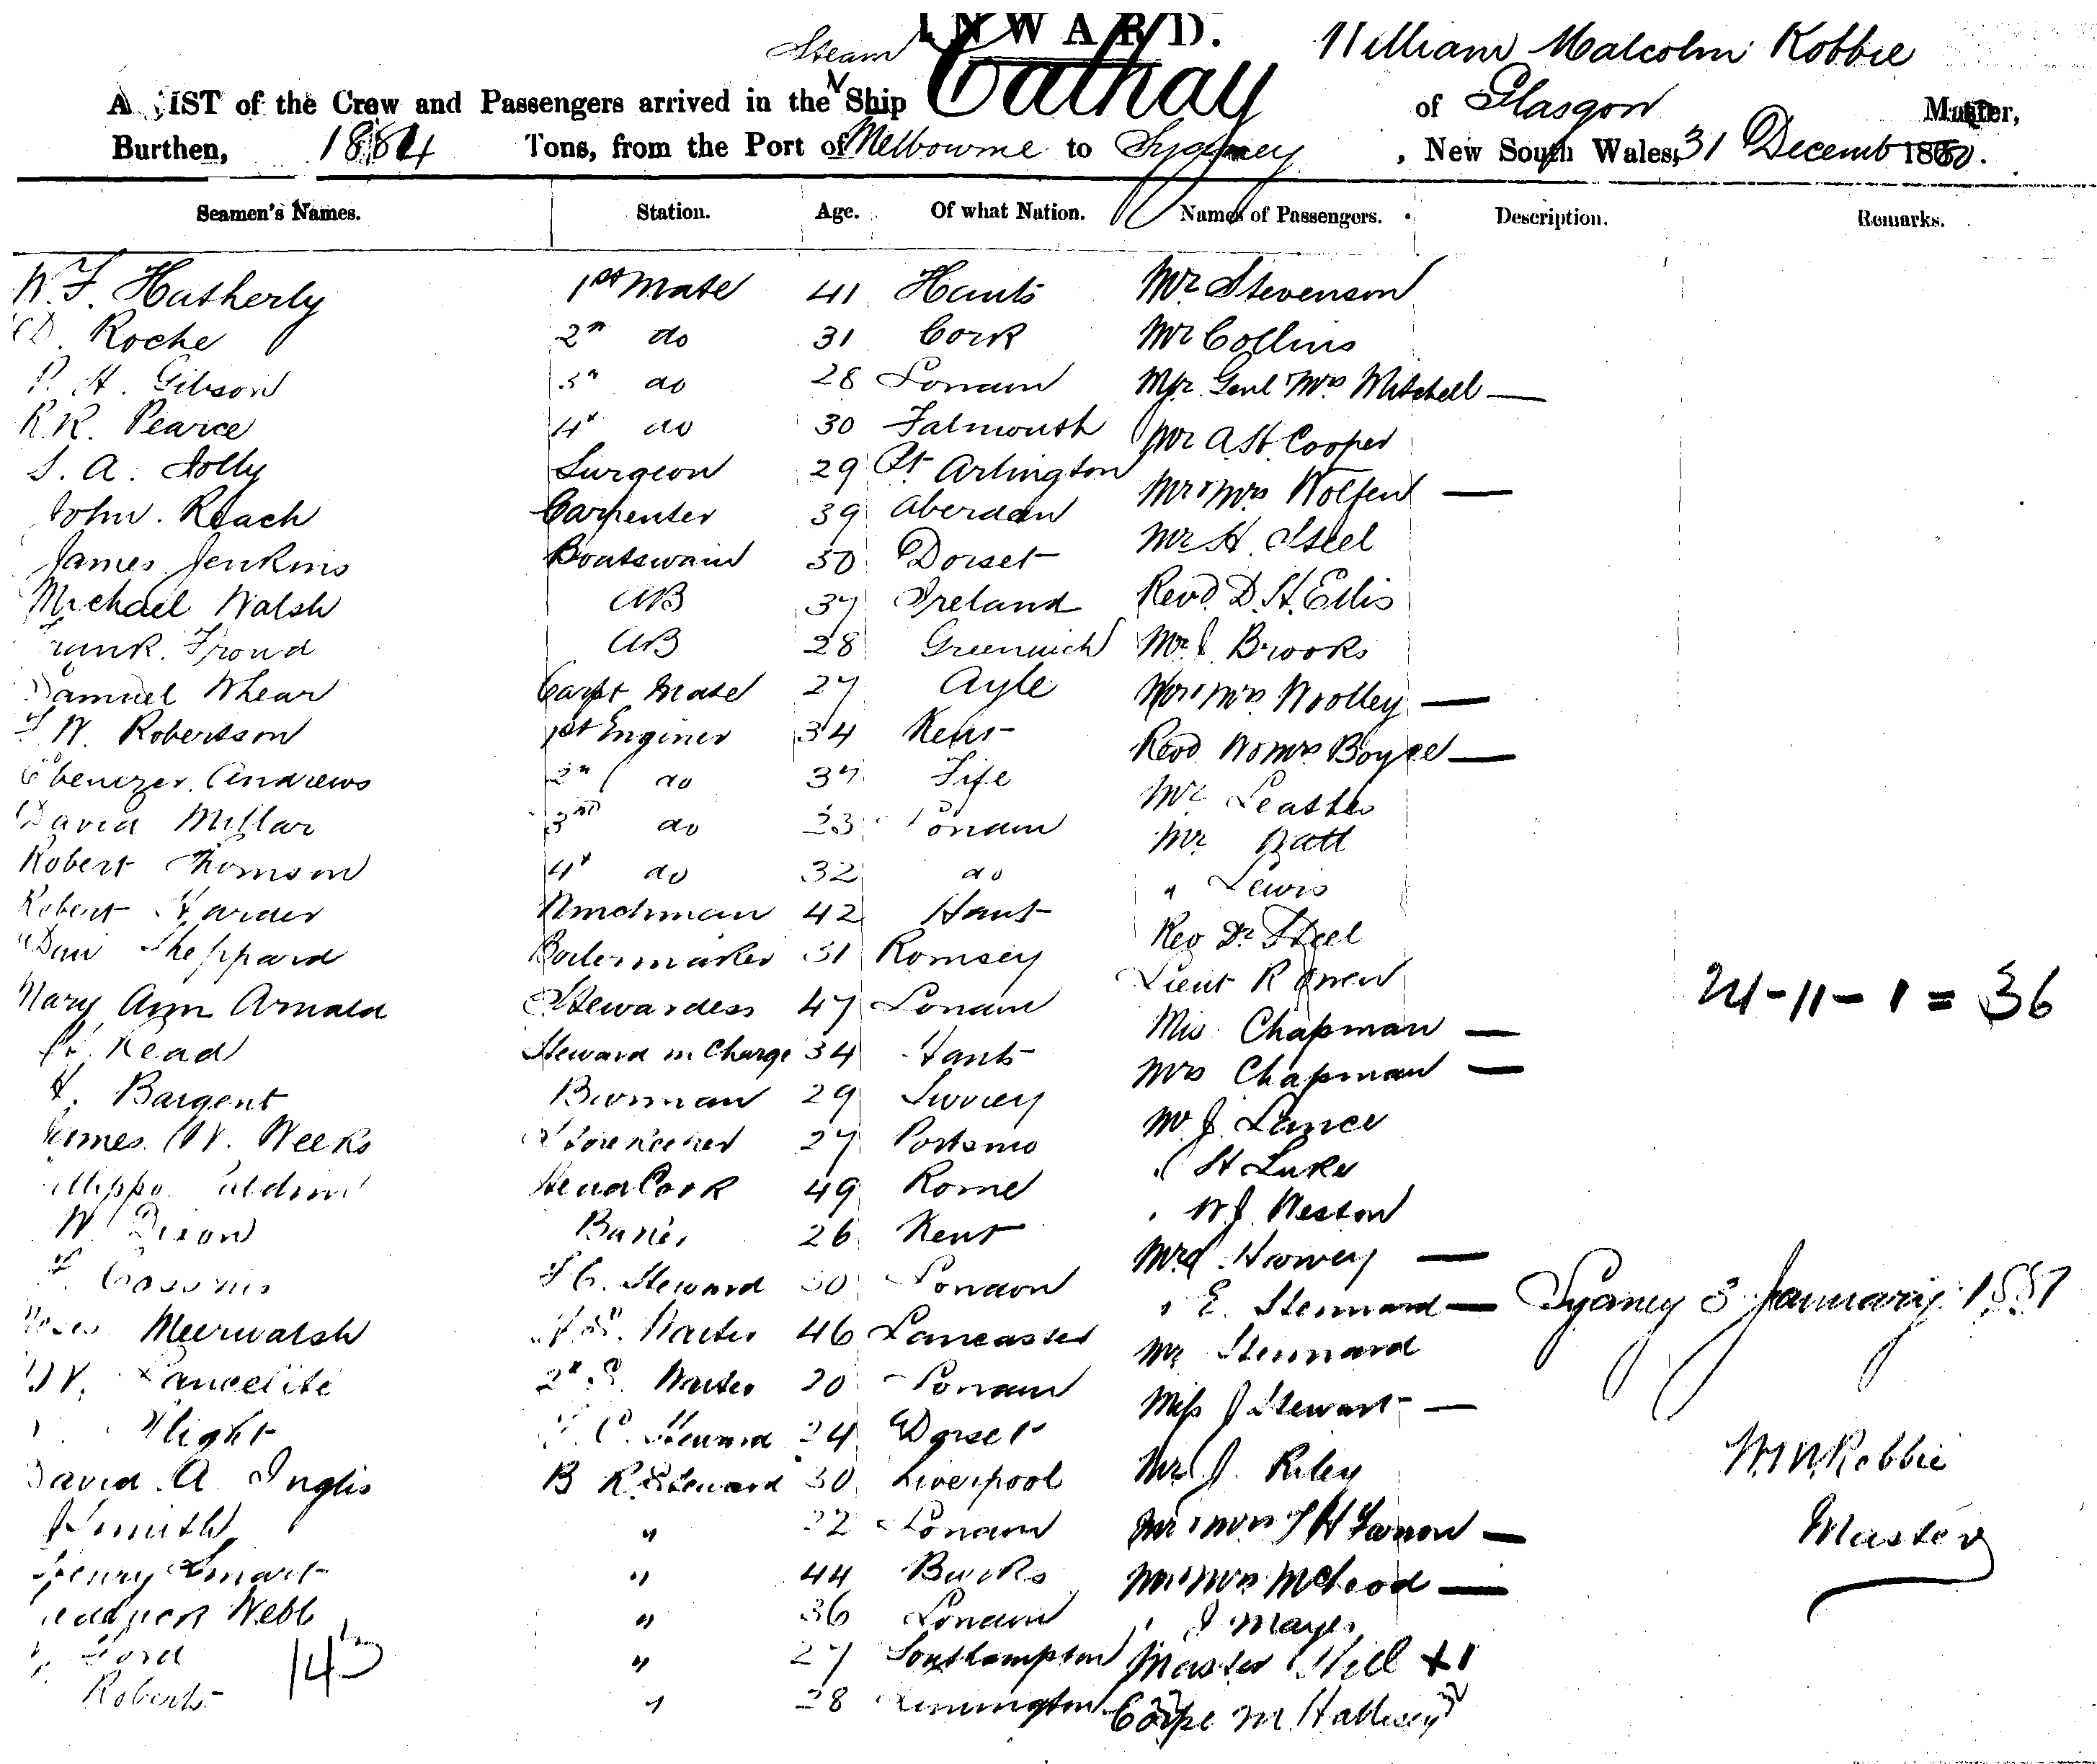 INWARD.
Steam Cathay William Malcolm Robbie
A LIST of the Crew and Passengers arrived in the Ship of Glasgow Master,
Burthen, 1884 Tons, from the Port of Melbourne to Sydney, New South Wales, 31 Decemb 1880.
Seamen's Names. Station. Age. Of what Nation. Names of Passengers. Description. Remarks.
W. F. Hatherly 1st Mate 41 Hants Mr Stevenson
D. Roche 2n do 31 Cork Mr Collins
P. H. Gibson 3n do 28 London Mjr Genl & Mrs Mitchell —
R. R. Pearce 4th do 30 Falmouth Mr A. H. Cooper
S. A. Jolly Surgeon 29 Pt Arlington Mr & Mrs Wolfen —
John Roach Carpenter 39 Aberdeen Mr H. Steel
James Jenkins Boatswain 30 Dorset Revd. D. H. Ellis
Michael Walsh AB 37 Ireland Mr J. Brooks
Frank Froud AB 28 Greenwich Mr & Mrs Woolley —
Samuel Whear Carpt Mate 27 Ayle Revd Boyce —
W. Robertson 1st Enginer 34 Kent Mr
Ebenezer Andrews 2n do 37 Fife Mr Batt
David Millar 3rd do 23 London " Lewis
Robert Thomson 4th do 32 do Rev Dr Steel
Robert Harder Winchman 42 Hants Lieut R Owen
Dan Sheppard Boilermaker 31 Romsey Miss Chapman —
Mary Ann Arnold Stewardess 47 London Mrs Chapman —
24 - 11 - 1 = 36
Read Steward in Charge 34 Hants Mr J. Lance
H. Bargent Barman 29 Surrey " H Luke
James W. Weeks Storekeeper 27 Portsmo " W J. Weston
Head Cook 49 Rome Mrs Harvey —
W. Dixon Baker 26 Kent " E. Stennard —
Steward 30 London Mr Stennard
Sydney 3 January 1881
Meerwalsh Waiter 46 Lancaster Miss J Stewart —
W. 2n S. Waiter 20 London Mr J. Riley
Steward 24 Dorset Mr & Mrs —
W. M. Robbie
David A. Inglis B R Steward 30 Liverpool Mr & Mrs McLeod —
Master
J Smith " 22 London " J Mayes
Henry Smart " 44 Bucks Master Hill + 1
Webb " 36 London
Ford " 27 Southampton
Roberts " 28
143